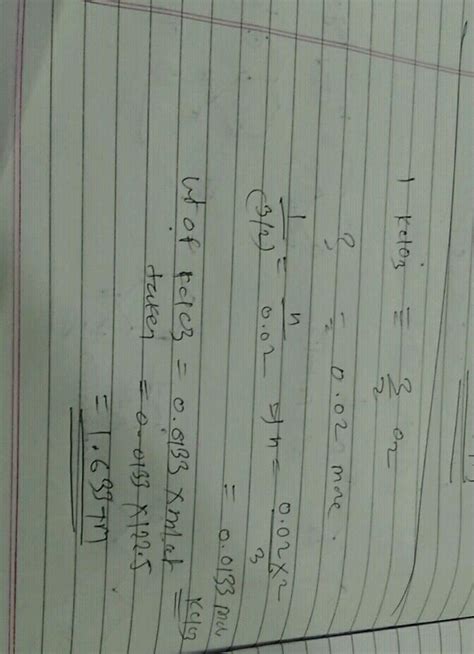 1 KClO3 ≡ 3/2 O2
? = 0.02 mole
1/(3/2) = n/0.02 ⇒ n = 0.02×2/3
= 0.0133 mole
wt of KClO3 taken = 0.0133 × m.wt KClO3
= 0.0133 × 122.5
= 1.633